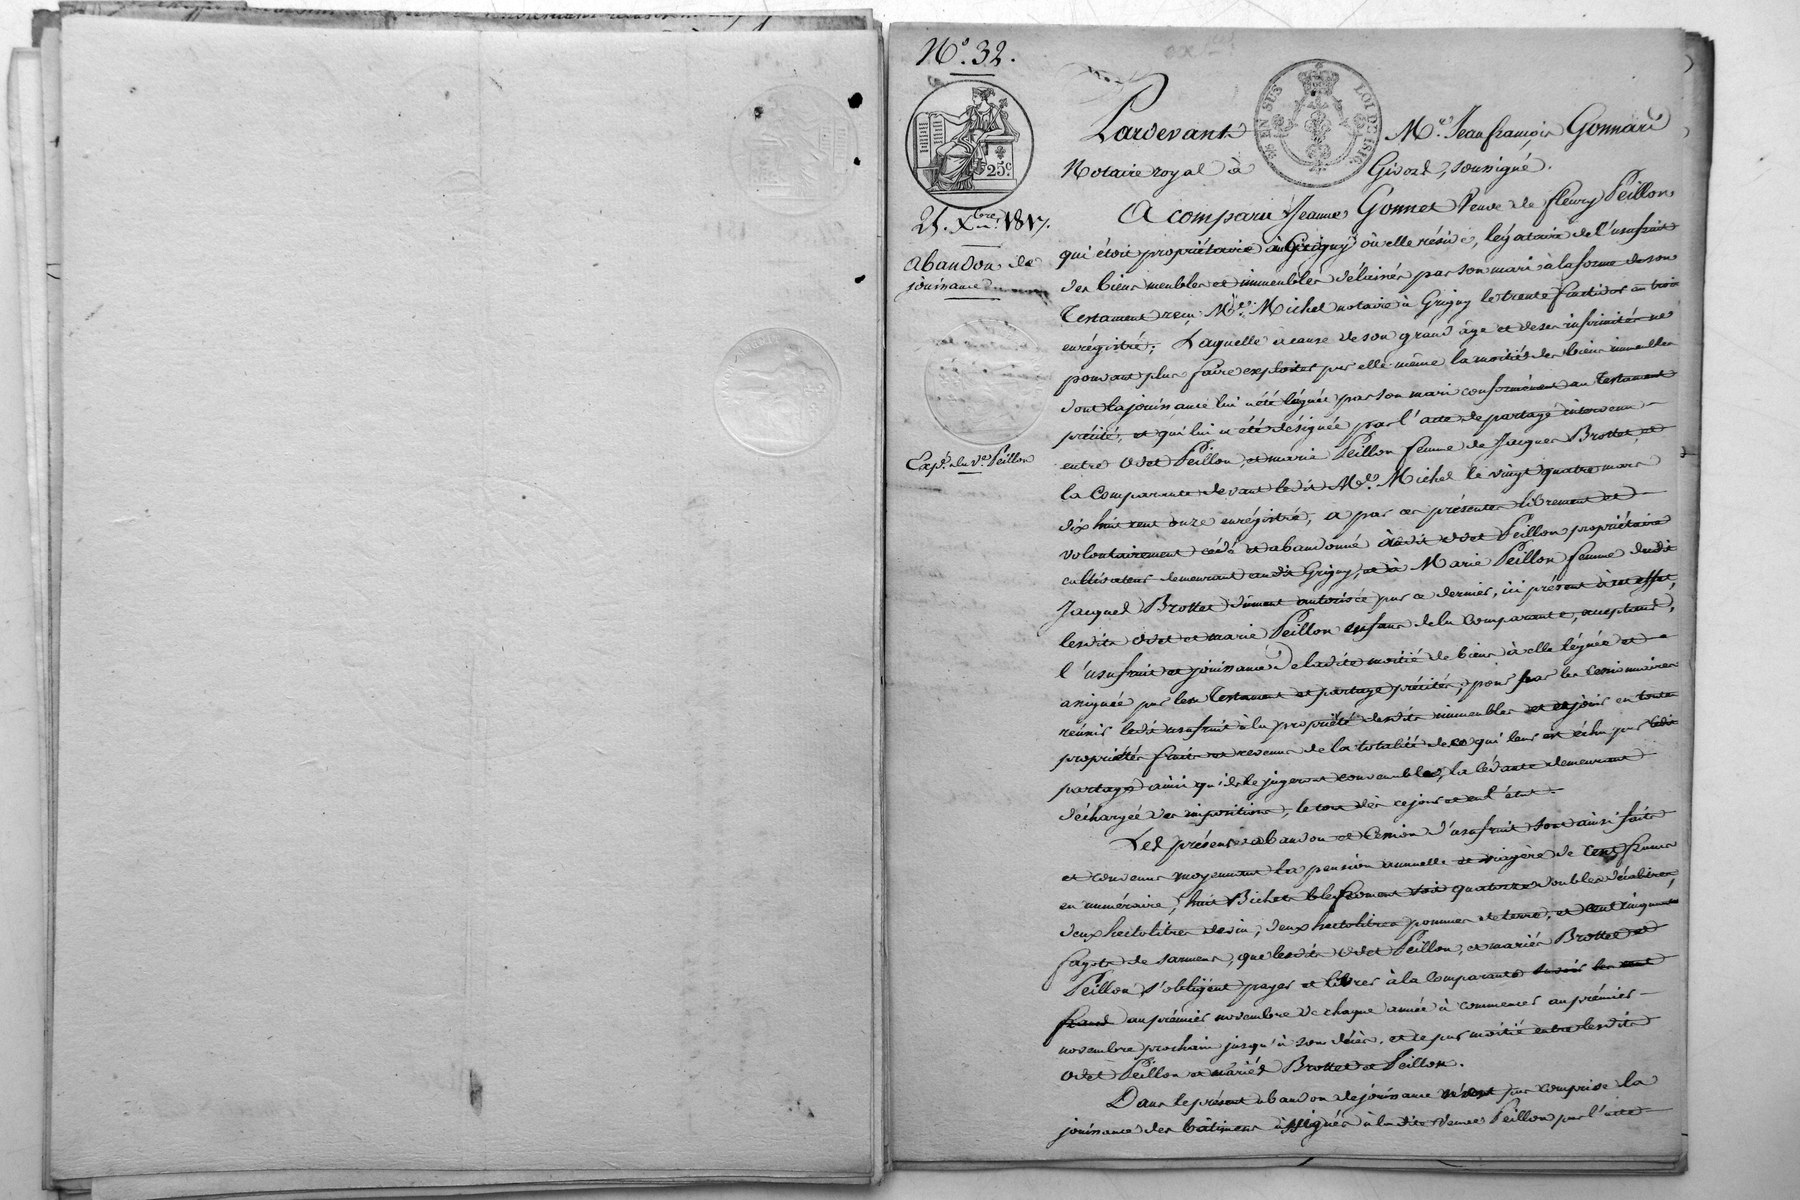 N.° 32.
EN SUS
LOI DE 1816.
25.c
Pardevant Me. Jean françois Gonnard
Notaire royal à Givord, soussigné.
21. Xbre. 1817.
abandon de
jouissance
Exp.n à la ve. Peillon
A comparu Jeanne Gonnet Veuve de fleury Peillon
qui étoit propriétaire à Grigny où elle réside, légataire de l'usufruit
des biens meubles et immeubles délaissés par son mari à la forme de son
Testament reçu Me. Michel notaire à Grigny le trente fructidor an trois
enrégistré; Laquelle à cause de son grand âge et de ses infirmités ne
pouvant plus faire exploiter par elle même la moitié des biens immeubles
dont la jouissance lui a été léguée par son mari conformément au Testament
précité, et qui lui a été désignée par l'acte de partage intervenu
entre Odet Peillon, et marie Peillon femme de Jacques Brottet, et
la Comparante devant ledit Me. Michel le vingt quatre mars
dix huit cent onze enrégistré, a par ces présentes librement et
volontairement cédé et abandonné audit Odet Peillon propriétaire
cultivateur demeurant audit Grigny, et à Marie Peillon femme dudit
Jacques Brottet dûment autorisée par ce dernier, ici présent à cet effet,
lesdits Odet et marie Peillon enfans de la Comparante, acceptant,
l'usufruit et jouissance de ladite moitié de biens à elle léguée et
assignée par les Testament et partage précités; pour par les Cessionnaires
réunir ledit usufruit à la propriété desdits immeubles et en jouir en toute
propriété fruits et revenus de la totalité de ce qui leur est échu par ledit
partage ainsi qu'ils le jugeront convenable, la Cédante demeurant
déchargée des impositions, le tout dès ce jour et en l'état.
Les présens abandon et Cession d'usufruit sont ainsi faits
et convenus moyennant la pension annuelle et viagère de cent francs
en numéraire, huit Bichets bled froment soit quatorze doubles décalitres,
deux hectolitres de vin, deux hectolitres pommes de terre, et cent cinquante
fagots de sarmens, que lesdits Odet Peillon, et mariés Brottet et
Peillon s'obligent payer et livrer à la Comparante
au prémier novembre de chaque année à commencer au prémier
novembre prochain jusqu'à son décès, et ce par moitié entre lesdits
Odet Peillon et mariés Brottet et Peillon.
Dans le présent abandon de jouissance n'est pas comprise la
jouissance des bâtimens assignés à ladite Veuve Peillon par l'acte